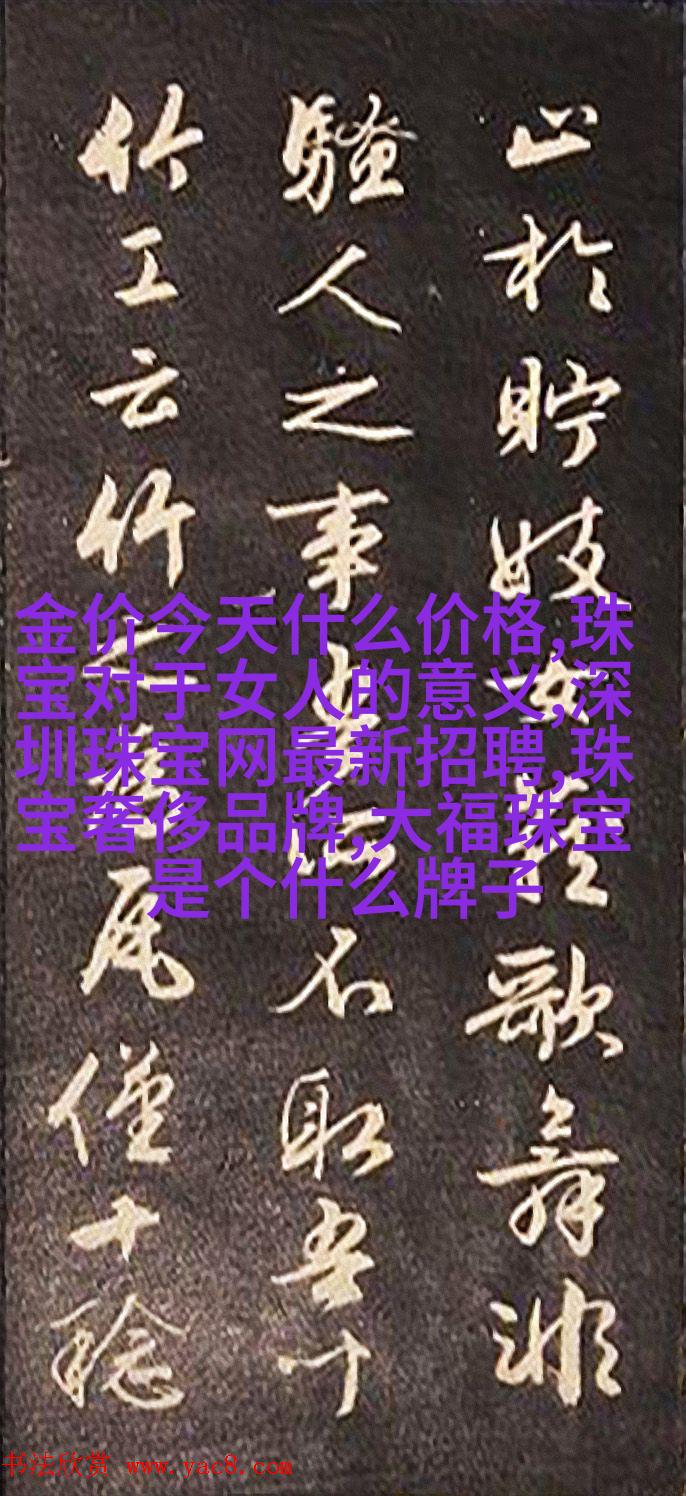 止於貯妓女藏歌舞非
騷人之事吾所不取吾
竹工云竹之為瓦僅十稔
金价今天什么价格,珠
宝对于女人的意义,深
圳珠宝网最新招聘,珠
宝奢侈品牌,大福珠宝
是个什么牌子
书法欣赏 www.yac8.com